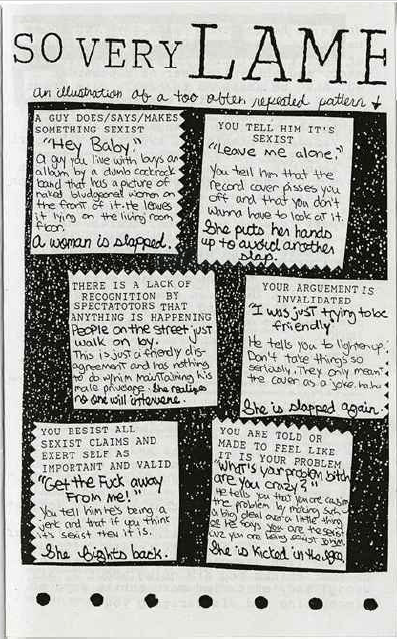 SO VERY LAME
an illustration of a too often repeated pattern
A GUY DOES/SAYS/MAKES
SOMETHING SEXIST
"Hey Baby"
a guy you live with buys an
album by a dumb cockrock
band that has a picture of
naked bludgeoned women on
the front of it. He leaves
it lying on the living room
floor.
A woman is slapped.
YOU TELL HIM IT'S
SEXIST
"Leave me alone."
You tell him that the
record cover pisses you
off and that you don't
wanna have to look at it.
She puts her hands
up to avoid another
slap.
THERE IS A LACK OF
RECOGNITION BY
SPECTATOTORS THAT
ANYTHING IS HAPPENING
People on the street just
walk on by.
This is just a friendly dis-
agreement and has nothing
to do w/him maintaining his
male privelage. She realizes
no one will intervene.
YOUR ARGUEMENT IS
INVALIDATED
"I was just trying to be
friendly"
He tells you to lighten up.
Don't take things so
seriously. They only meant
the cover as a joke. ha ha
She is slapped again.
YOU RESIST ALL
SEXIST CLAIMS AND
EXERT SELF AS
IMPORTANT AND VALID
"Get the Fuck away
From me!"
You tell him he's being a
jerk and that if you think
it's sexist then it is.
She fights back.
YOU ARE TOLD OR
MADE TO FEEL LIKE
IT IS YOUR PROBLEM
"What's your problem bitch
are you crazy?"
He tells you that you are causing
the problem by making such
a big deal over a little thing
or He says you are the sexist
cuz you are being sexist
She is kicked in the